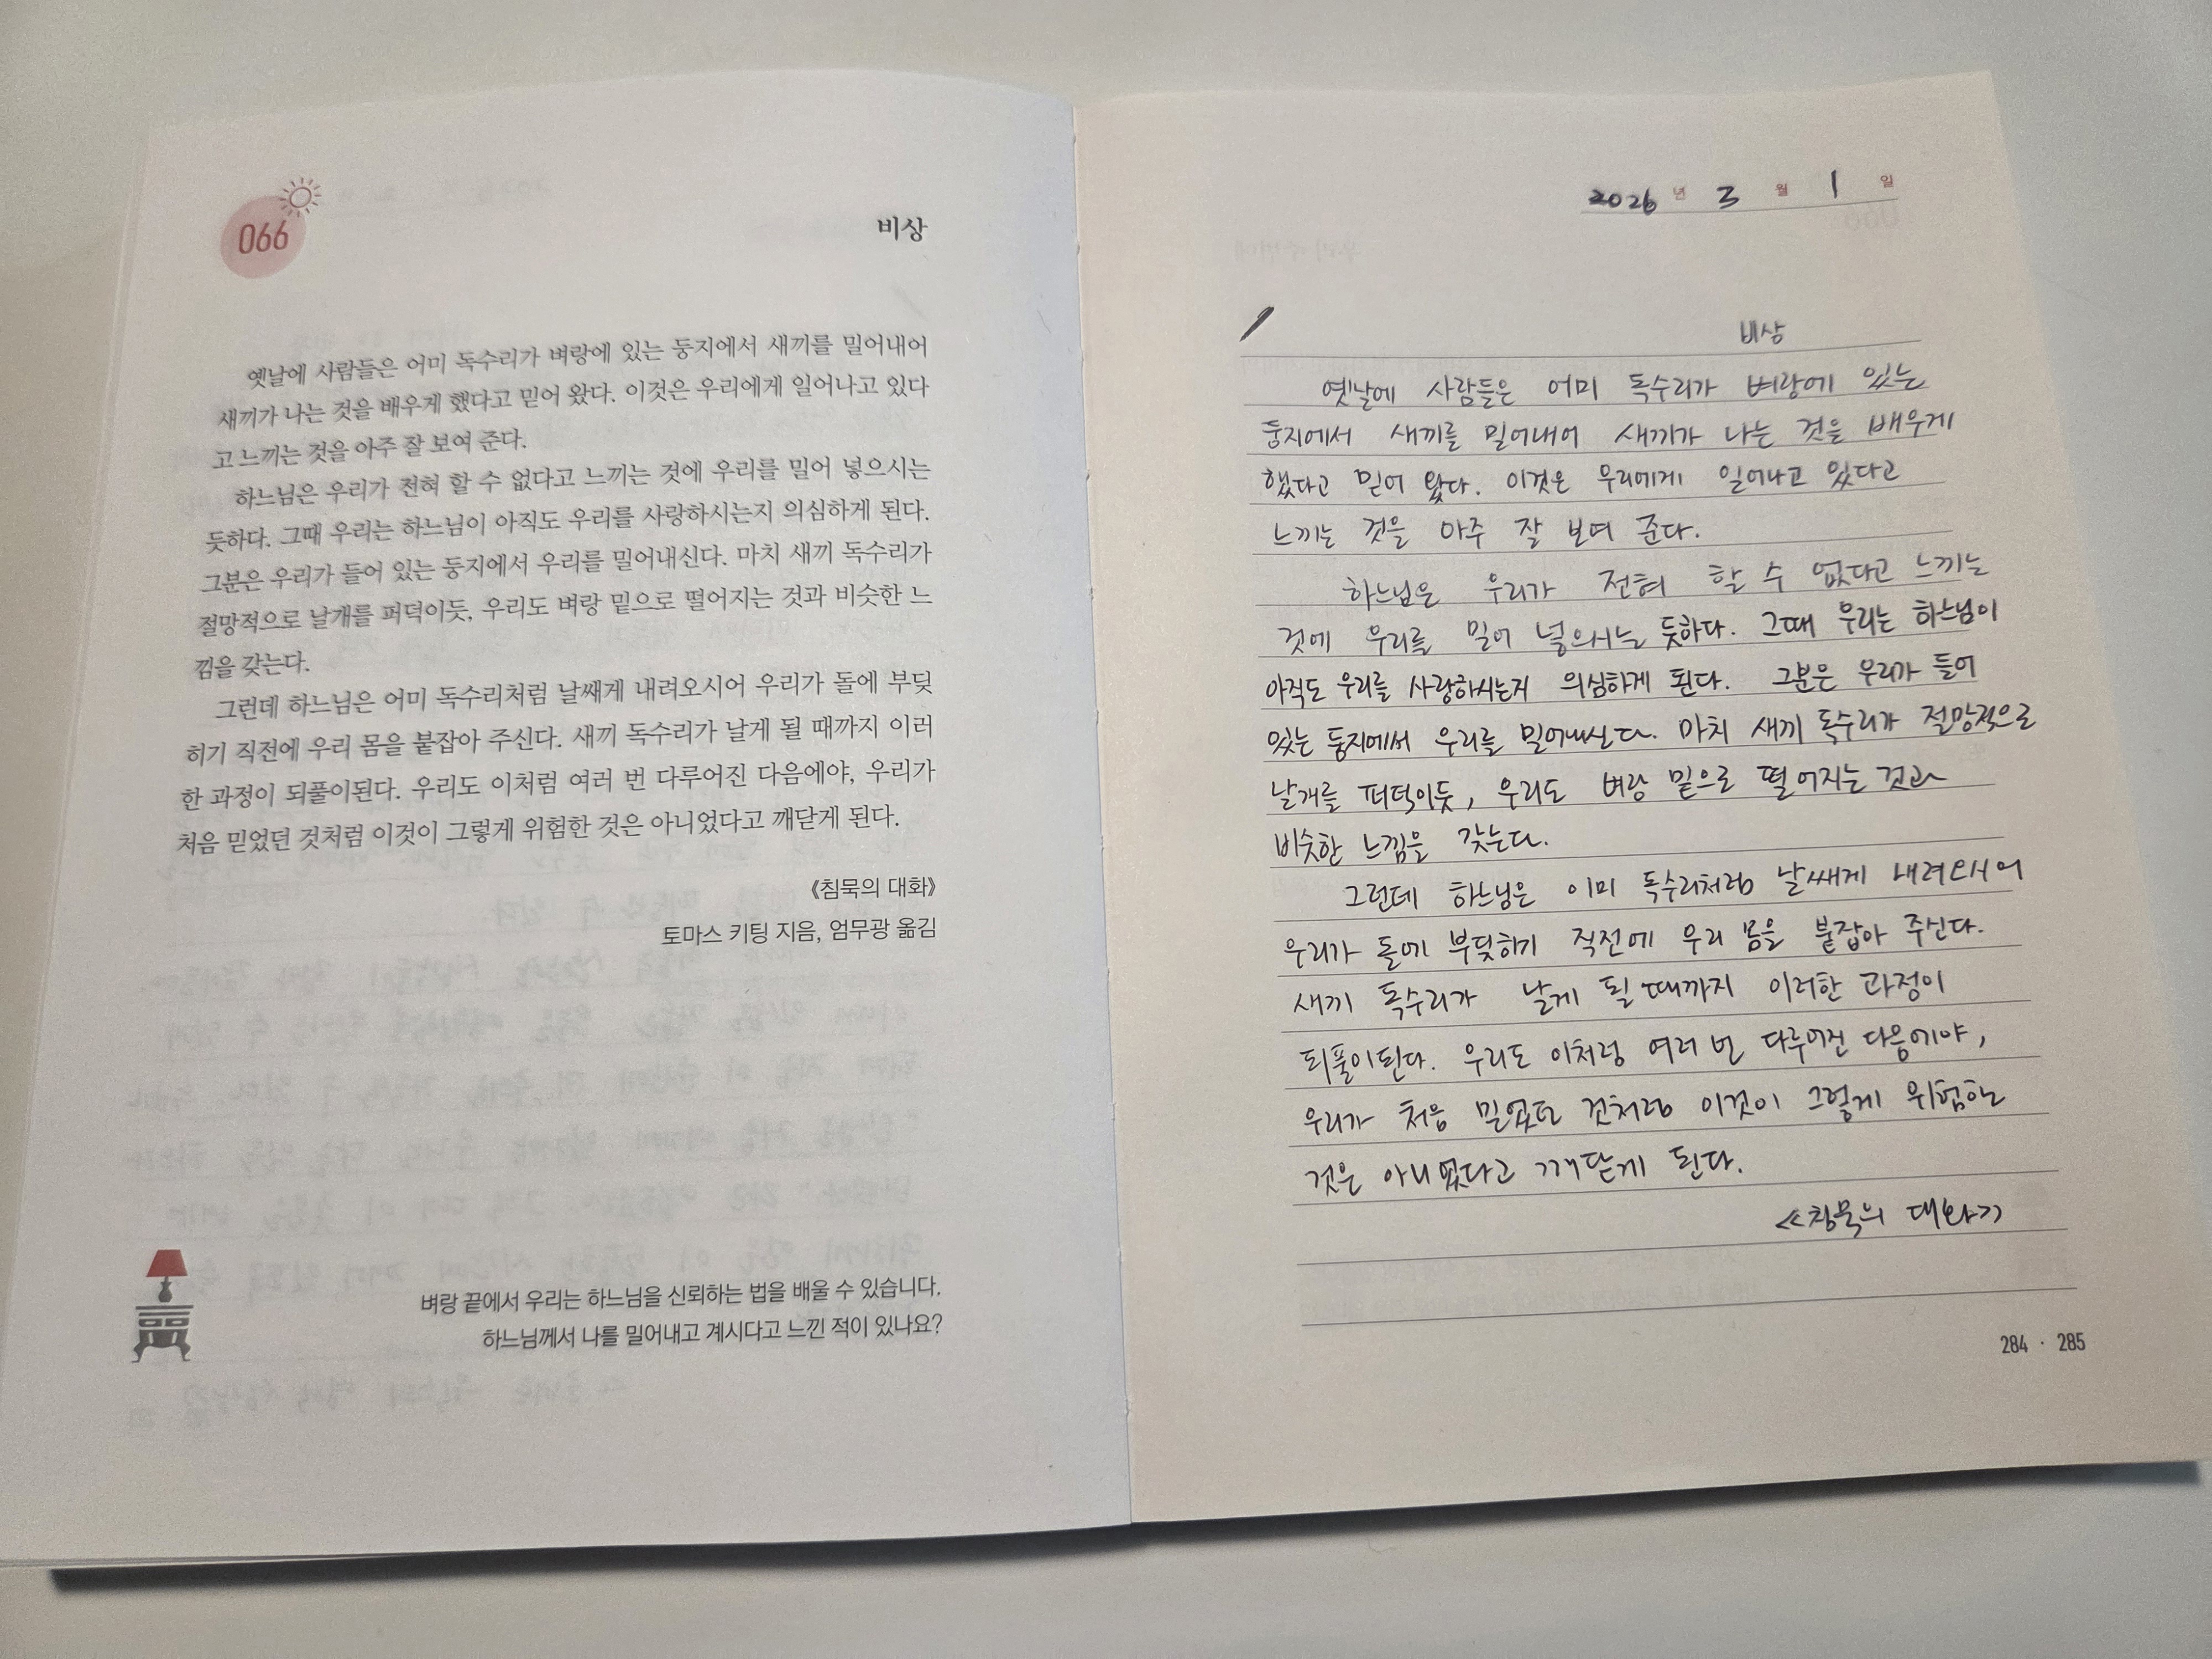 066
비상
옛날에 사람들은 어미 독수리가 벼랑에 있는 둥지에서 새끼를 밀어내어
새끼가 나는 것을 배우게 했다고 믿어 왔다. 이것은 우리에게 일어나고 있다
고 느끼는 것을 아주 잘 보여 준다.
하느님은 우리가 전혀 할 수 없다고 느끼는 것에 우리를 밀어 넣으시는
듯하다. 그때 우리는 하느님이 아직도 우리를 사랑하시는지 의심하게 된다.
그분은 우리가 들어 있는 둥지에서 우리를 밀어내신다. 마치 새끼 독수리가
절망적으로 날개를 퍼덕이듯, 우리도 벼랑 밑으로 떨어지는 것과 비슷한 느
낌을 갖는다.
그런데 하느님은 어미 독수리처럼 날쌔게 내려오시어 우리가 돌에 부딪
히기 직전에 우리 몸을 붙잡아 주신다. 새끼 독수리가 날게 될 때까지 이러
한 과정이 되풀이된다. 우리도 이처럼 여러 번 다루어진 다음에야, 우리가
처음 믿었던 것처럼 이것이 그렇게 위험한 것은 아니었다고 깨닫게 된다.
《침묵의 대화》
토마스 키팅 지음, 엄무광 옮김
벼랑 끝에서 우리는 하느님을 신뢰하는 법을 배울 수 있습니다.
하느님께서 나를 밀어내고 계시다고 느낀 적이 있나요?
2026 년 3 월 1 일
비상
옛날에 사람들은 어미 독수리가 벼랑에 있는
둥지에서 새끼를 밀어내어 새끼가 나는 것을 배우게
했다고 믿어 왔다. 이것은 우리에게 일어나고 있다고
느끼는 것을 아주 잘 보여 준다.
하느님은 우리가 전혀 할 수 없다고 느끼는
것에 우리를 밀어 넣으시는 듯하다. 그때 우리는 하느님이
아직도 우리를 사랑하시는지 의심하게 된다. 그분은 우리가 들어
있는 둥지에서 우리를 밀어내신다. 마치 새끼 독수리가 절망적으로
날개를 퍼덕이듯, 우리도 벼랑 밑으로 떨어지는 것과
비슷한 느낌을 갖는다.
그런데 하느님은 이미 독수리처럼 날쌔게 내려오시어
우리가 돌에 부딪히기 직전에 우리 몸을 붙잡아 주신다.
새끼 독수리가 날게 될 때까지 이러한 과정이
되풀이된다. 우리도 이처럼 여러 번 다루어진 다음에야,
우리가 처음 믿었던 것처럼 이것이 그렇게 위험한
것은 아니었다고 깨닫게 된다.
≪침묵의 대화>
284 · 285